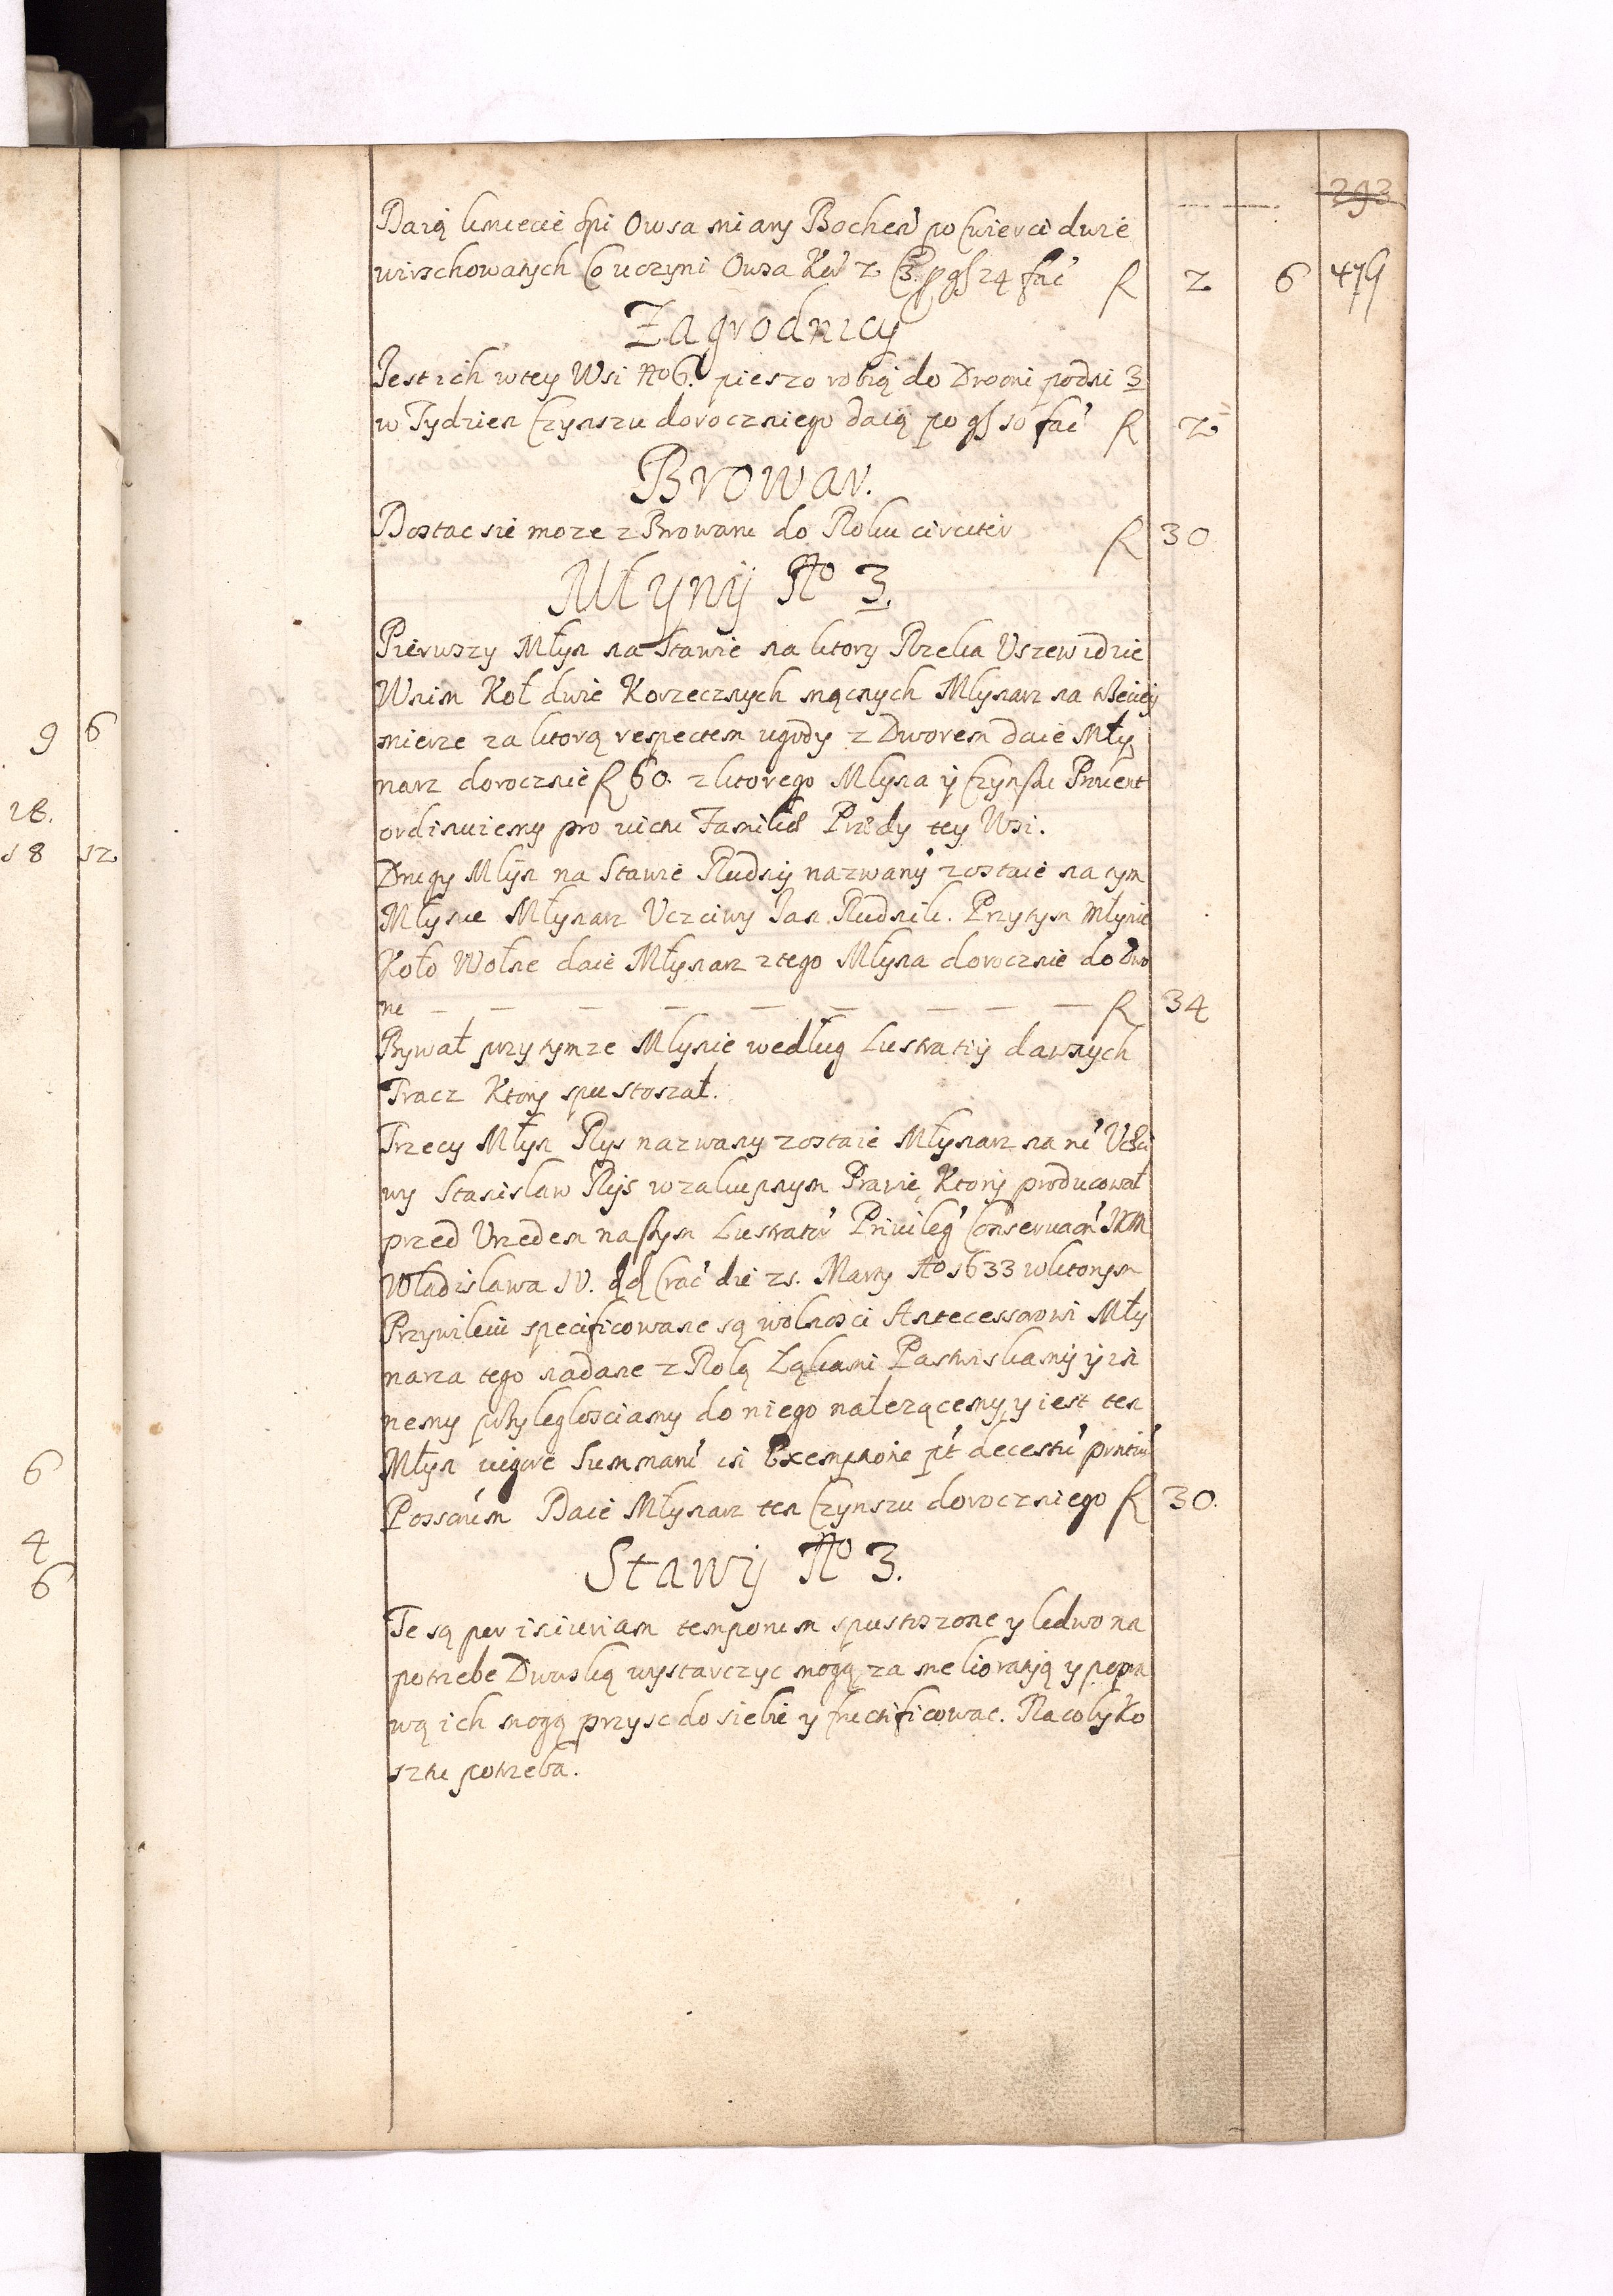 293
Daią kmiecie ośpi Owsa miary Bochen̄ po ćwierci dwie
wirzchowatych Co uczyni Owsa Kor̄ 2 Ć 3. p gſ 24 fać f 2 6 479
Zagrodnicy
Jest ich w tey Wsi No 6. pieszo robią do Dworu po dni 3
w Tydzien Czynszu dorocznego daią po gſ 10 fać f 2
Browar.
Dostac sie moze z Browaru do Roku circiter f 30
Młynÿ No 3.
Pierwszy Młyn na Stawie na ktory Rzeka Uszew idzie
W nim Koł dwie Korzecznych mącnych Młynarz na trzeciey
mierze za ktorą respectem ugody z Dworem daie Mły
narz dorocznie f 60. z ktorego Młyna ÿ Czynszu Prouent
ordinuiemy pro victu Familiæ Prædy tey Wsi.
Drugy Młÿn na Stawie Rudnÿ nazwanÿ zostaie na tym
Młynie Młynarz Uczciwy Jan Rudnik. Przy tym Młynie
Koło Wolne daie Młynarz z tego Młyna dorocznie do Dwo
ru — — — — — — — — — f 34
Bywał przy tymze Mlynie według Lustratiÿ dawnych
Tracz Ktory spustoszał.
Trzecy Młyn Rys nazwany zostaie Młynarz na nī Uczci
wy Stanislaw Rÿs w zakupnym Prawie Ktorÿ producował
przed Urzedem naszym Lustratr̄ Priuileḡ Conseruaōn̄ JKM
Wladislawa IV. dd Crac̄ die 21. Marty Ao 1633 w ktorym
Przywileiu specificowane są wolnosci Antecessorowi Mły
narza tego nadane z Rolą Łąkami Pastwiskamÿ ÿ in
nemy przyległosciamy do niego należącemy y iest ten
Młyn uigore Summarū in Exemptione pt̄ decessū prntiū
Possorūm Daie Młynarz ten Czynszu dorocznego f 30.
Stawÿ No 3.
Te są per iniuriam temporum spustoszone y ledwo na
potrzebe Dworską wystarczyc mogą za melioratią y popra
wą ich mogą przysc do siebie y fructificowac. Na co by Ko
sztu potrzeba.
9 6
18.
18 12
6
4
6